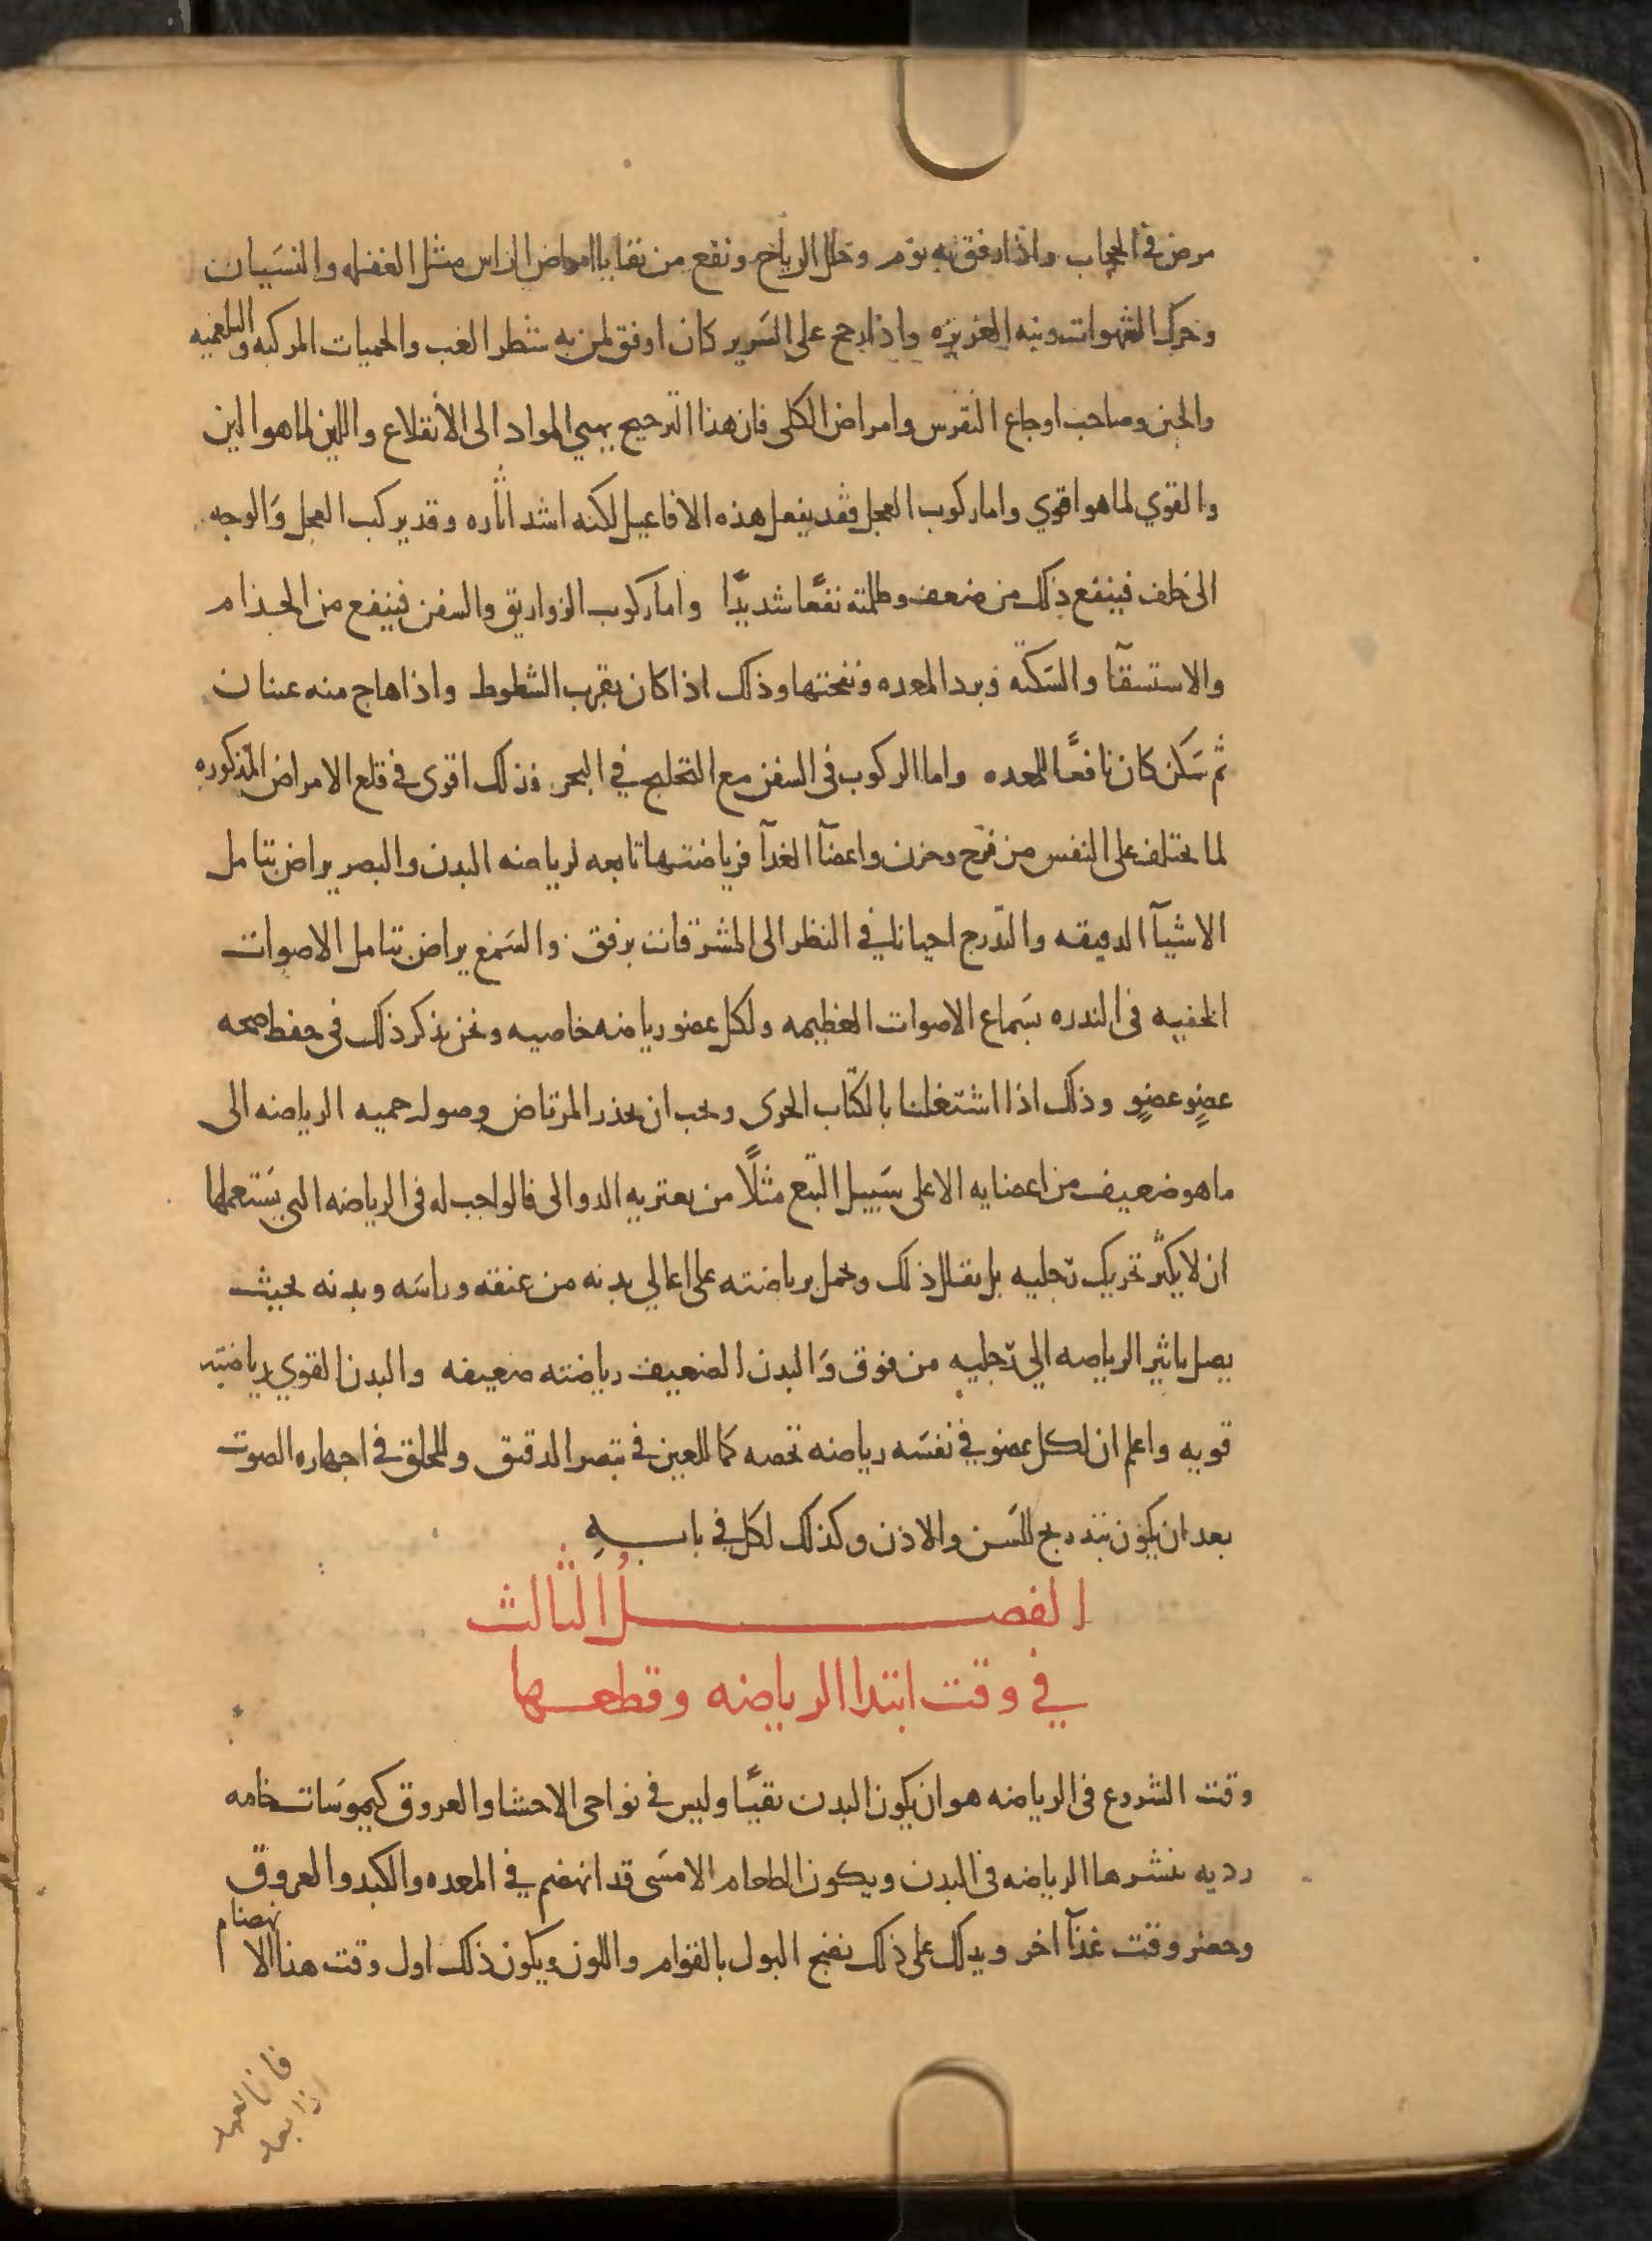 مرض في الحجاب واذا رفق به نوم وحلل الرياح ونفع من بقايا امراض الراس مثل الغفله والنسيان
وحرك الشهوات ونبه الغريزه واذا رجح على السرير كان اوفق لمن به شطر الغب والحميات المركبه والبلغميه
والحبن وصاحب اوجاع النقرس وامراض الكلى فان هذا الترجيح يهيي المواد الى الانقلاع واللين لما هو الين
والقوي لما هو اقوي واما ركوب العجل فقد يفعل هذه الافاعيل لكنه اشد اثاره وقد يركب العجل والوجه
الى خلف فينفع ذلك من ضعف وظلمته نفعًا شديدًا واما ركوب الزواريق والسفن فينفع من الجذام
والاستسقآ والسكته وبرد المعده ونفختها وذلك اذا كان بقرب الشطوط واذا هاج منه غثيان
ثم سكن كان نافعًا للمعده واما الركوب في السفن مع التحليج في البحر فذلك اقوى في قلع الامراض المذكوره
لما يختلف على النفس من فرح وحزن واعضآ الغدآ فرياضتها تابعه لرياضه البدن والبصر يراض بتامل
الاشيآ الدقيقه والتدرج احيانا في النظر الى المشرقات برفق والسمع يراض بتامل الاصوات
الخفيه في الندره بسماع الاصوات العظيمه ولكل عضو رياضه خاصيه ونحن نذكر ذلك في حفظ صحه
عضوٍ عضوٍ وذلك اذا اشتغلنا بالكتاب الجزى ويجب ان يحذر المرتاض وصول حميه الرياضه الى
ما هو ضعيف من اعضايه الا على سبيل التبع مثلًا من يعتريه الدوالى فالواجب له في الرياضه التي يستعملها
ان لا يكثر تحريك رجليه بل يقلل ذلك ويحمل برياضته على اعالي بدنه من عنقه وراسه وبدنه بحيث
يصل تاثير الرياضه الي رجليه من فوق والبدن الضعيف رياضته ضعيفه والبدن القوي رياضته
قويه واعلم ان لكل عضو في نفسه رياضه تخصه كما للعين في تبصر الدقيق وللحلق في اجهاره الصوت
بعد ان يكون بتدريج للسن والاذن وكذلك لكل في بابهِ
الفصل الثالث
في وقت ابتدا الرياضه وقطعها
وقت الشروع في الرياضه هو ان يكون البدن نقيًا وليس في نواحي الاحشا والعروق كيموسات خامه
رديه ينشرها الرياضه في البدن ويكون الطعام الامسى قد انهضم في المعده والكبد والعروق
وحضر وقت غدآ اخر ويدلك على ذلك نضج البول بالقوام واللون ويكون ذلك اول وقت هذا الانهضام